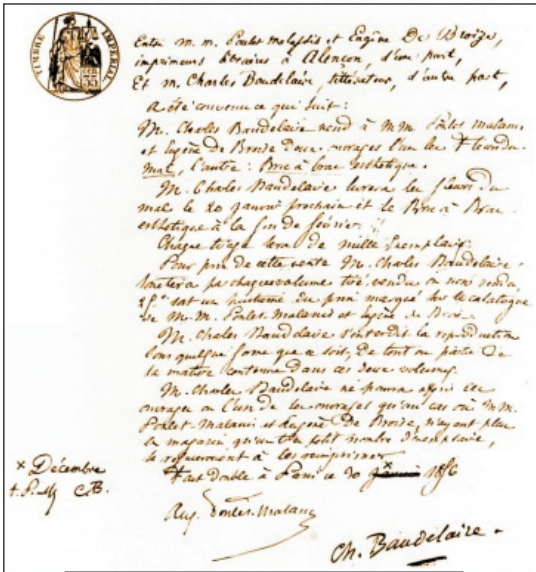 TIMBRE IMPERIAL
Entre M. M. Poulet Malassis et Eugène De Broise,
imprimeurs libraires à Alençon, d'une part,
Et M. Charles Baudelaire, littérateur, d'autre part,
a été convenu ce qui suit :
M. Charles Baudelaire vend à MM. Poulet Malassis
et Eugène de Broise deux ouvrages l'un les Fleurs du
mal, l'autre : Bric à brac esthétique.
M. Charles Baudelaire livrera les fleurs du
mal le 20 janvier prochain et le Bric à Brac
esthétique à la fin de février.
Chaque tirage sera de mille Exemplaires.
Pour prix de cette vente M. Charles Baudelaire
touchera par chaque volume tiré, vendu ou non vendu,
soit un huitième du prix marqué sur le catalogue
de M.M. Poulet Malassis et Eugène de Broise.
M. Charles Baudelaire s'interdit la reproduction
sous quelque forme que ce soit, De tout ou partie De
la matière contenue dans ces deux volumes.
M. Charles Baudelaire ne pourra offrir ces
ouvrages ou l'un de ces ouvrages qu'au cas où MM.
Poulet-Malassis et Eugène De Broise, n'ayant plus
en magasin qu'un très petit nombre d'exemplaires,
se refuseraient à les réimprimer.
Fait double à Paris ce 30 janvier 1856
x Décembre
P. M. C. B.
Aug. Poulet-Malassis
Ch. Baudelaire